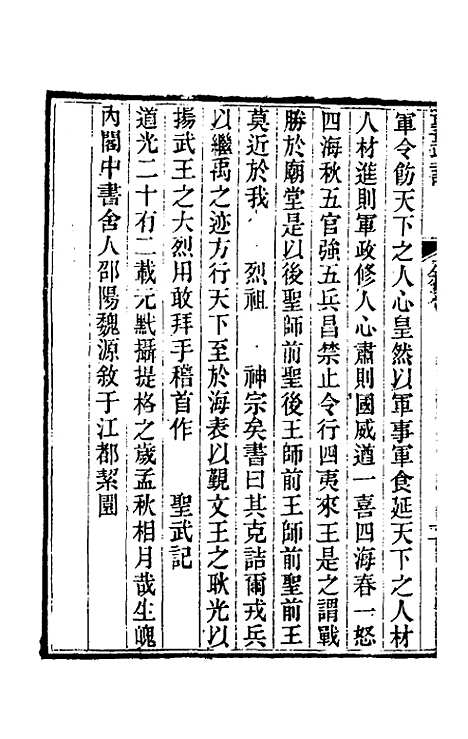 軍令飭天下之人心皇然以軍事軍食延天下之人材
人材進則軍政修人心肅則國威遒一喜四海春一怒
四海秋五官強五兵昌禁止令行四夷來王是之謂戰
勝於廟堂是以後聖師前聖後王師前王師前聖前王
莫近於我　烈祖　神宗矣書曰其克詰爾戎兵
以繼禹之迹方行天下至於海表以覲文王之耿光以
揚武王之大烈用敢拜手稽首作　聖武記
道光二十有二載元默攝提格之歲孟秋相月哉生魄
內閣中書舍人邵陽魏源敘于江都絜園